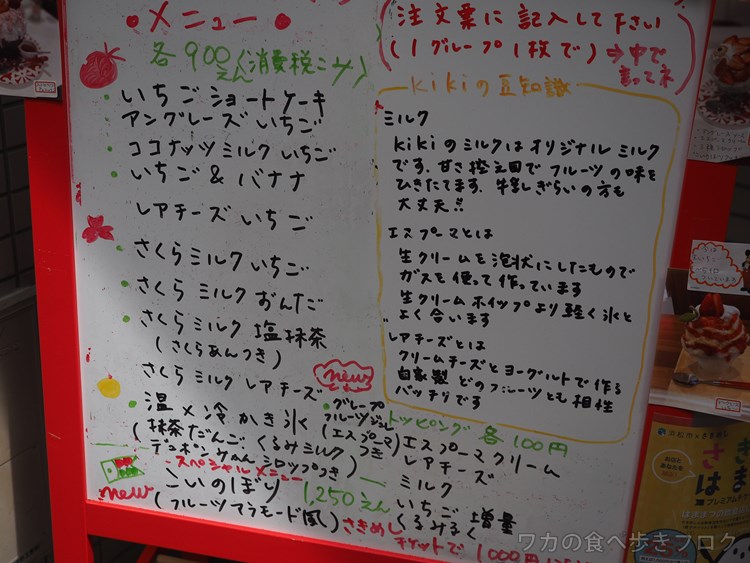 メニュー
各900えん(消費税こみ)
いちごショートケーキ
アングレーズいちご
ココナッツミルクいちご
いちご&バナナ
レアチーズいちご
さくらミルクいちご
さくらミルクずんだ
さくらミルク塩抹茶
(さくらあんつき)
さくらミルクレアチーズ
new
温×冷かき氷
(抹茶だんご、くるみミルク
デコポンみかんシロップつき)
グレープ
フルーツジュレ
(エスプーマ)
つき
スペシャルメニュー
new
こいのぼり 1,250えん
(フルーツアラモード風)
さきめし
チケットで1000円
注文票に記入して下さい
(1グループ1枚で)⇒中で
言ってネ
kikiの豆知識
ミルク
kikiのミルクはオリジナルミルク
です。甘さ控え目でフルーツの味を
ひきたてます。牛乳ぎらいの方も
大丈夫!!
エスプーマとは
生クリームを泡状にしたもので
ガスを使って作っています
生クリームホイップより軽く氷と
よく合います
レアチーズとは
クリームチーズとヨーグルトで作る
自家製 どのフルーツとも相性
バッチリです
トッピング 各100円
エスプーマクリーム
レアチーズ
ミルク
いちご増量
くるみるく
さき
はま
プレミアム
ワカの食べ歩きブログ